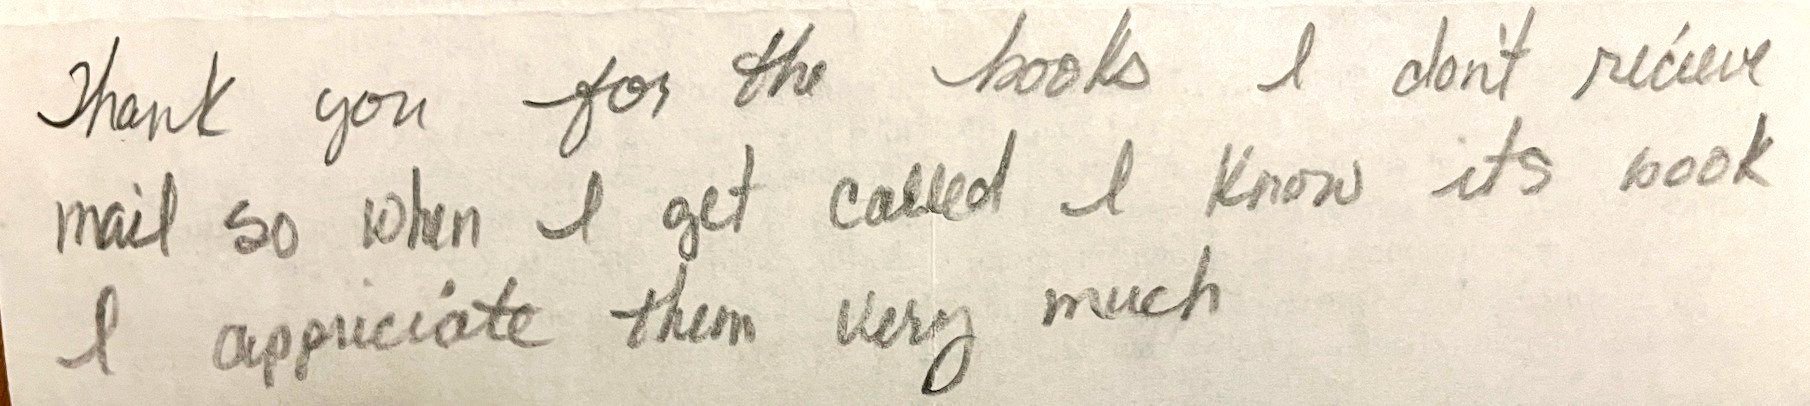 Thank you for the books I don't recieve
mail so when I get called I know its book
I appriciate them very much